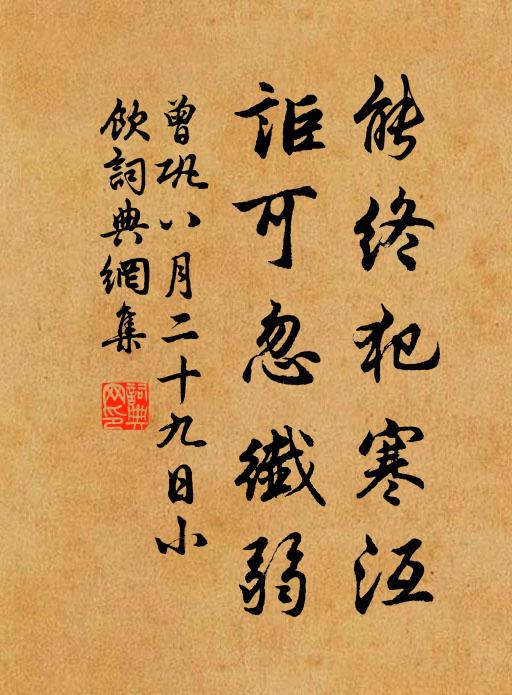 能終犯寒沍
詎可忽纖弱
曾巩八月二十九日小
飲詞典網集
詞典网印